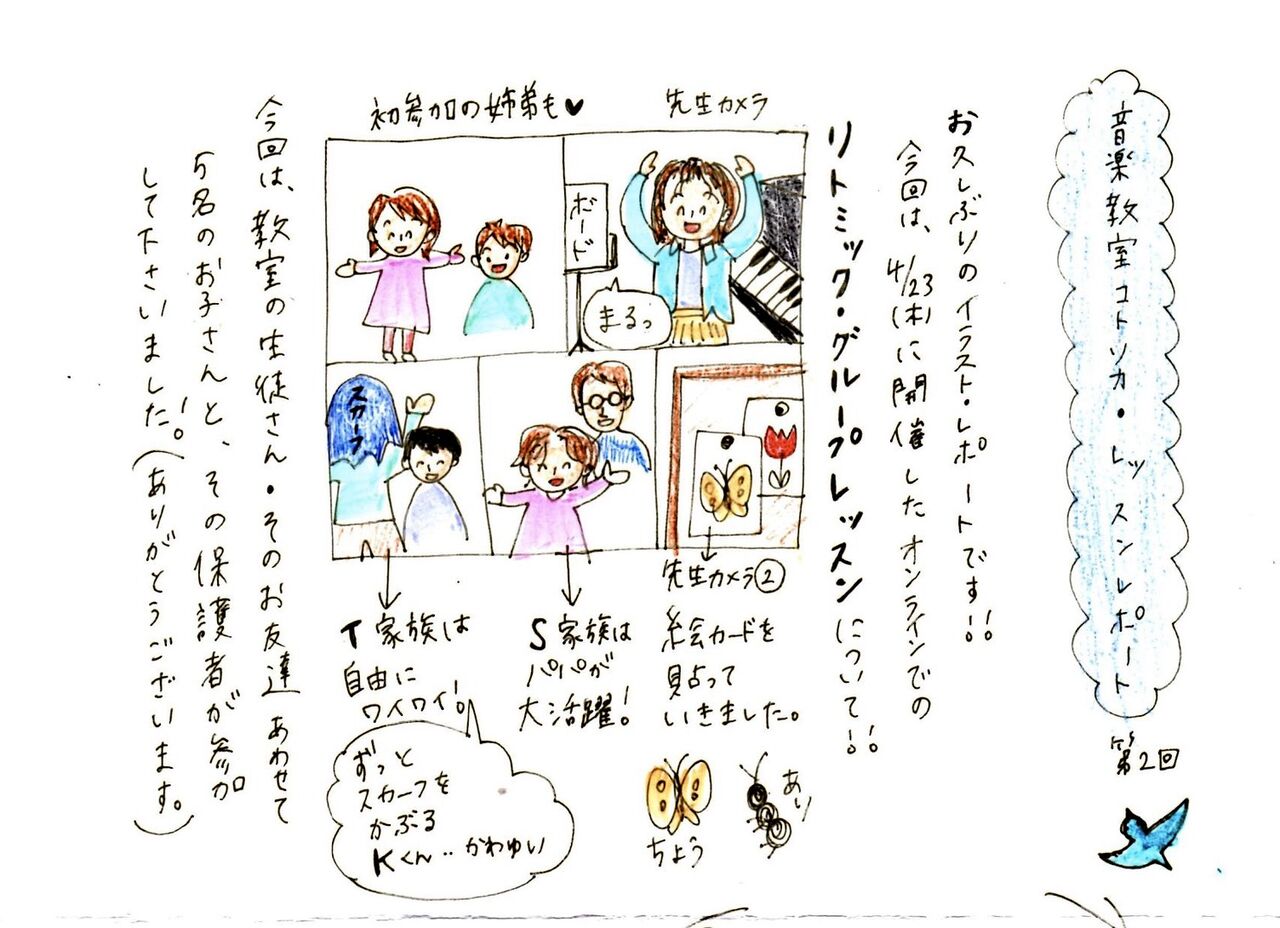 音楽教室コトソカ・レッスンレポート
第2回
お久しぶりのイラスト・レポートです!!
今回は、4/23(木)に開催したオンラインでの
リトミック・グループレッスンについて!!
先生カメラ
初参加の姉弟も♥
ボード
まるっ
スカーフ
先生カメラ②
絵会カードを
見占って
いきました。
ちょう
あり
S家族は
パパが
大活躍!
T家族は
自由に
ワイワイ!
ずっと
スカーフを
かぶる
Kくん‥かわゆい
今回は、教室の生徒さん・そのお友達あわせて
5名のお子さんと、その保護者が参加
して下さいました!。(ありがとうございます。)